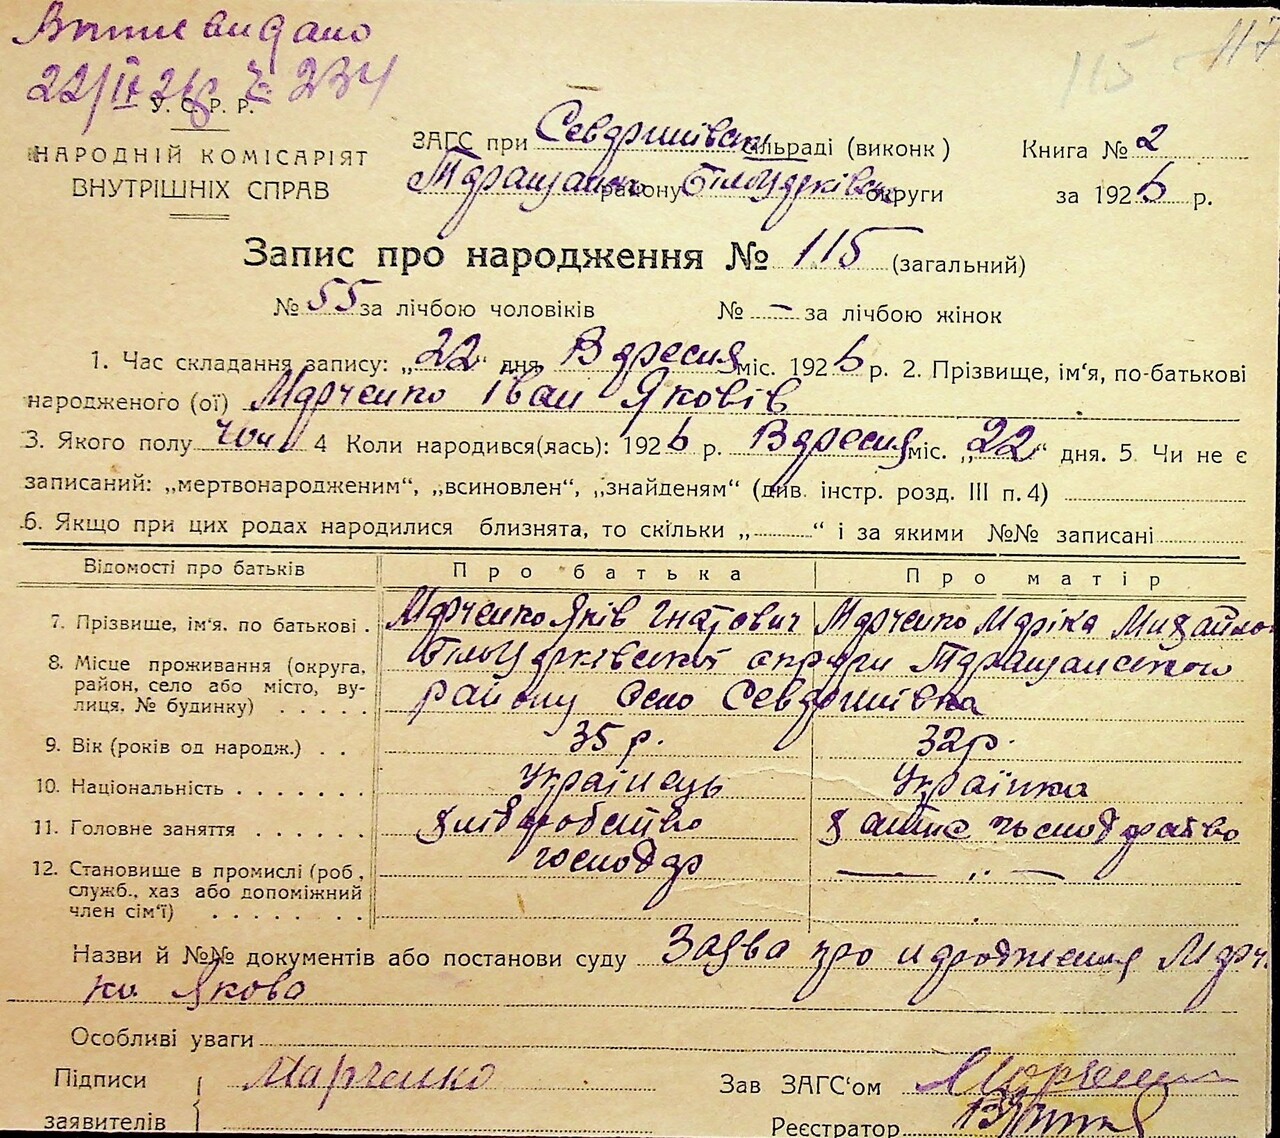 Витяг видано
22/IX 26р. № 234
115 - 117
У. С. Р. Р.
НАРОДНІЙ КОМІСАРІЯТ
ВНУТРІШНІХ СПРАВ
ЗАГС при сільраді (виконк)
Таращан району Білоцерківськ округи
Книга № 2
за 1926 р.
Запис про народження № 115 (загальний)
№ 55 за лічбою чоловіків № — за лічбою жінок
1. Час складання запису: „22“ дня Вересня міс. 1926 р. 2. Прізвище, ім‘я, по-батькові
народженого (ої) Марченко Іван Яковів
3. Якого полу чол 4 Коли народився(лась): 1926 р. Вересня міс. „22“ дня. 5. Чи не є
записаний: „мертвонародженим“, „всиновлен“, „знайденям“ (див. інстр. розд. III п. 4)
6. Якщо при цих родах народилися близнята, то скільки „ “ і за якими №№ записані
Відомості про батьків Про батька Про матір
7. Прізвище, ім‘я. по батькові . Марченко Яків Гнатович Марченко Маріка Михайло
8. Місце проживання (округа, Білоцерківської округи Таращанського
район, село або місто, ву- району Село
лиця. № будинку) . . . . .
9. Вік (років од народж.) . . 35 р. 32 р.
10. Національність . . . . . . . Українець Українка
11. Головне заняття . . . . . . хліборобство хатнє господарство
12. Становище в промислі (роб, господар — „ —
служб., хаз або допоміжний
член сім‘ї) . . . . . . . .
Назви й №№ документів або постанови суду Заява про народження Марчен
ка Якова
Особливі уваги
Підписи Марченко Зав ЗАГС‘ом
заявителів Реєстратор